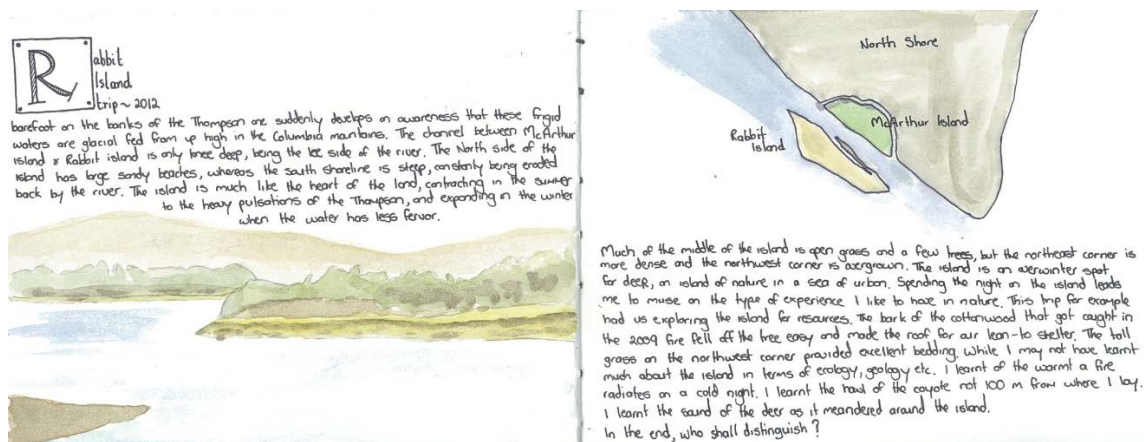 Rabbit
Island
trip ~ 2012
barefoot on the banks of the Thompson one suddenly develops an awareness that these frigid
waters are glacial fed from up high in the Columbia mountains. The channel between McArthur
Island & Rabbit island is only knee deep, being the lee side of the river. The North side of the
island has large sandy beaches, whereas the south shoreline is steep, constantly being eroded
back by the river. The island is much like the heart of the land, contracting in the summer
to the heavy pulsations of the Thompson, and expanding in the winter
when the water has less fervor.
North Shore
McArthur Island
Rabbit
Island
Much of the middle of the island is open grass and a few trees, but the northeast corner is
more dense and the northwest corner is overgrown. The island is an overwinter spot
for deer, an island of nature in a sea of urban. Spending the night on the island leads
me to muse on the type of experience I like to have in nature. This trip for example
had us exploring the island for resources. The bark of the cottonwood that got caught in
the 2009 fire fell off the tree easy and made the roof for our lean-to shelter. The tall
grass on the northwest corner provided excellent bedding. While I may not have learnt
much about the island in terms of ecology, geology etc. I learnt of the warmt a fire
radiates on a cold night. I learnt the howl of the coyote not 100 m from where I lay.
I learnt the sound of the deer as it meandered around the island.
In the end, who shall distinguish?